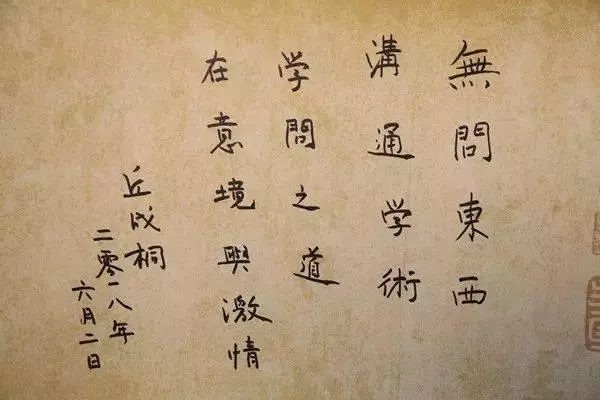 無問東西
溝通学術
学問之道
在意境與激情
丘成桐
二零一八年
六月二日